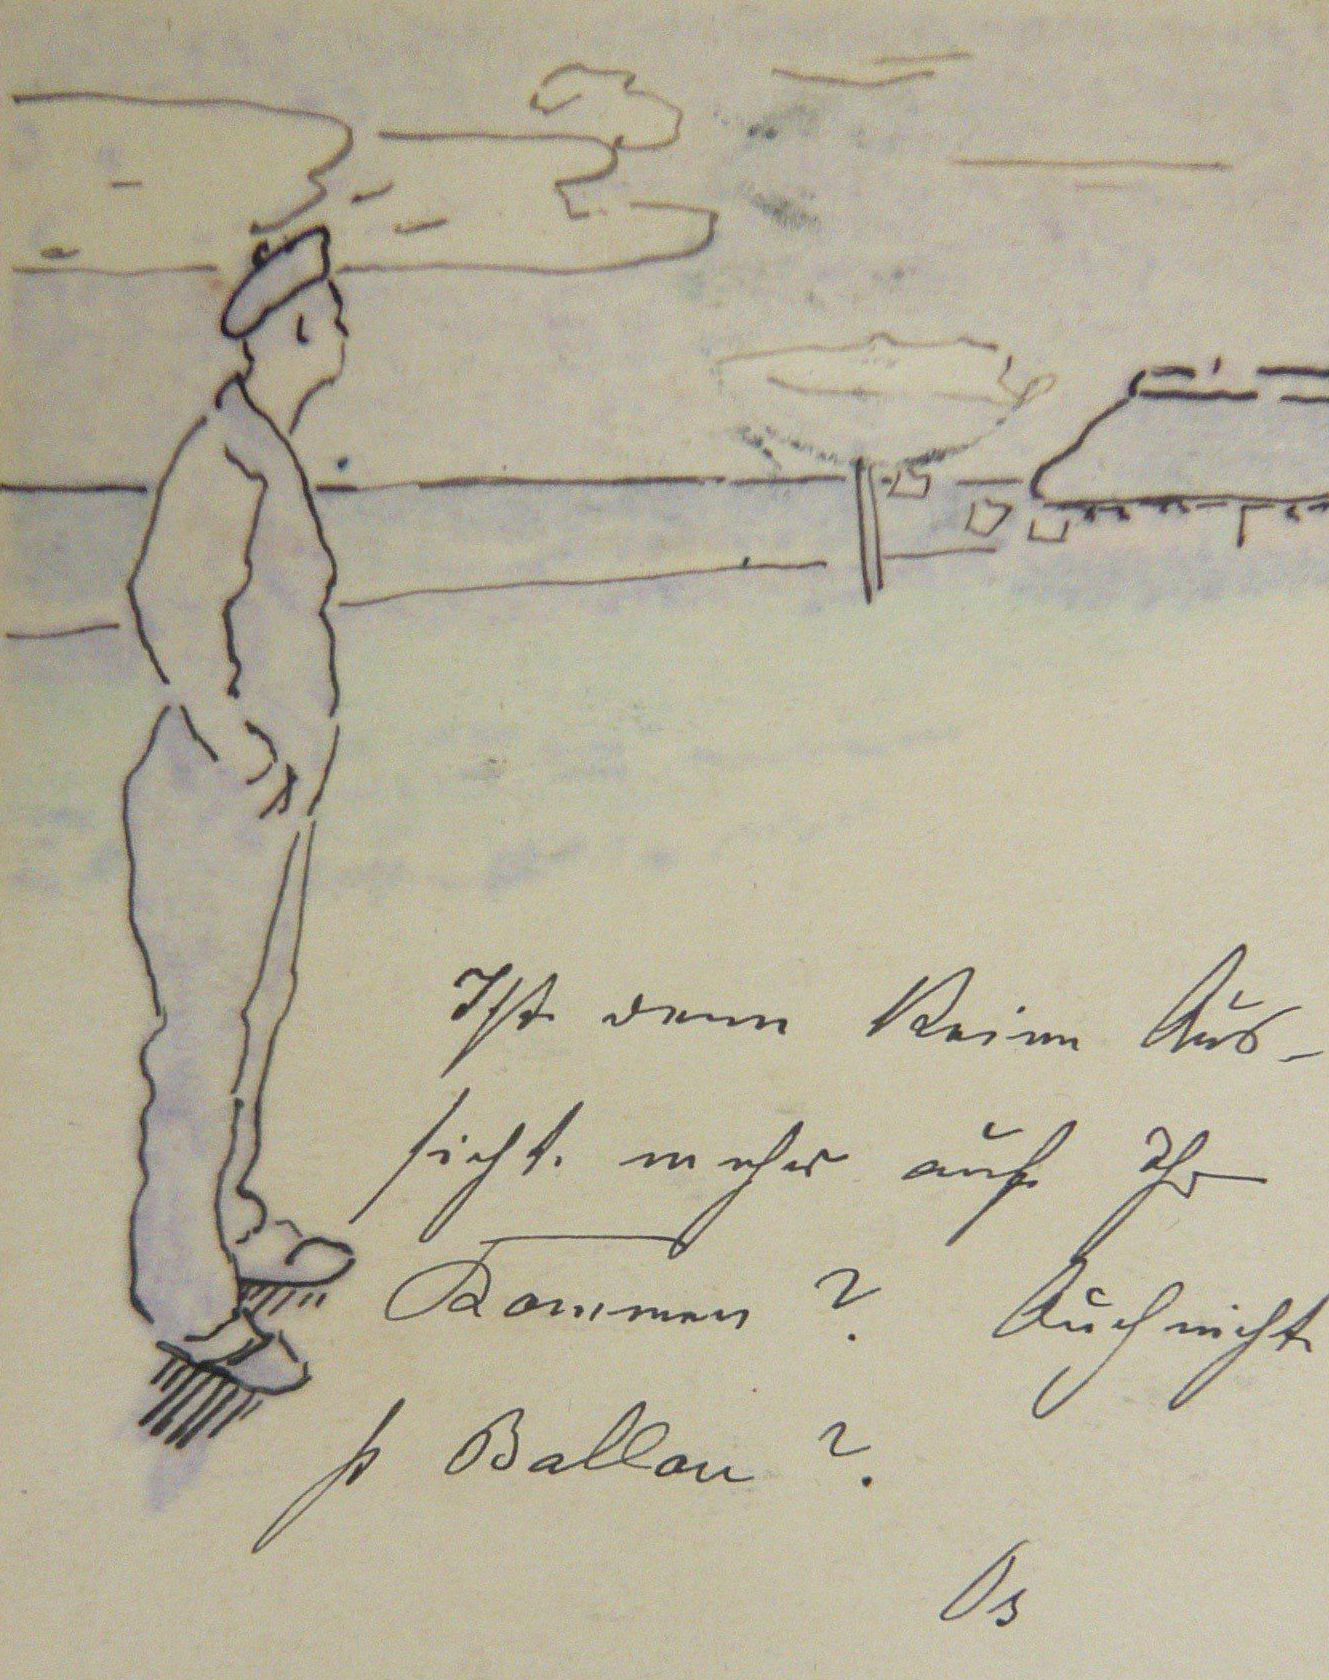 Ist denn keine Aus-
sicht mehr auf Ihr
Kommen ? Auch nicht
p Ballon ?
Os